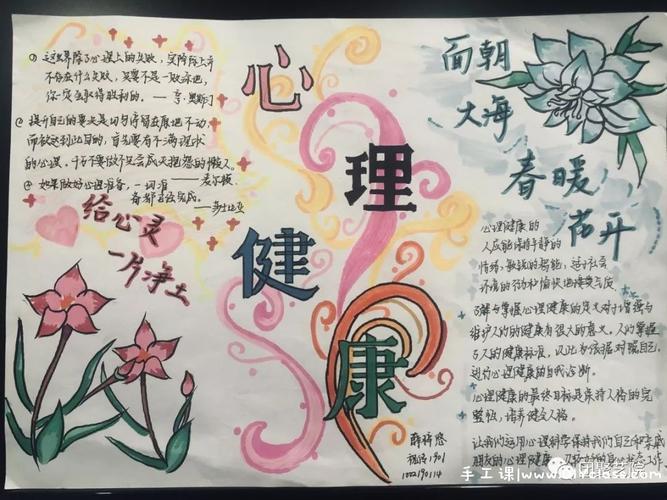 心
理
健
康
① 这世界除了心理上的失败，实际上并
不存在什么失败，只要不是一败涂地，
你一定会取得胜利的。——亨·奥斯汀
② 提升自己的要义是切勿停留在原地不动，
而欲达到此目的，首先要有不满现状
的心理。
③ 如果做好心理准备，一切准
备都已经完成。
——莎士比亚
给心灵
一片净土
面朝
大海
春暖
花开
心理健康的
人应能保持平静的
情绪，敏锐的智能，适于社会
环境的行为和愉快的
了解与掌握心理健康的定义对于增强与
维护人们的健康有很大的意义。人们掌握
了人的健康标准，以此为依据对照自己，
进行心理健康的自我诊断。
心理健康的最终目标是保持人格的完
整性，培养健全人格。
让我们运用心理科学保持我们自己和亲戚
朋友的心理健康
1901
1002190114
手工课